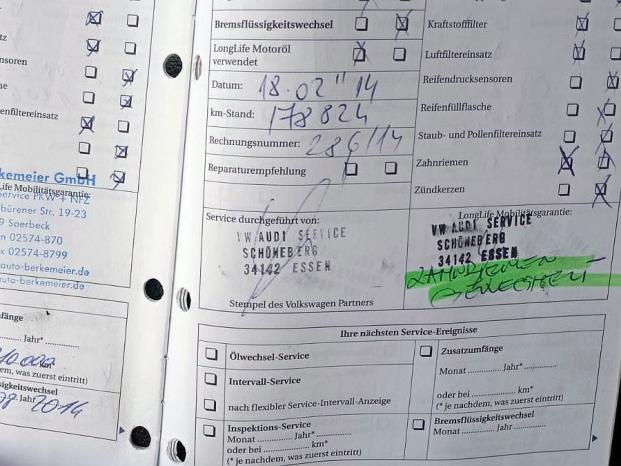 tz
nsoren
he
enfiltereinsatz
erkemeier GmbH
Life Mobilitätsgarantie:
Service PKW + NFZ
bürener Str. 19-23
9 Saerbeck
n 02574-870
x 02574-8799
auto-berkemeier.de
auto-berkemeier.de
fänge
Jahr*
10.000 km*
dem, was zuerst eintritt)
sigkeitswechsel
Jahr 2014
Bremsflüssigkeitswechsel
LongLife Motoröl
verwendet
Datum: 18.02"14
km-Stand: 178824
Rechnungsnummer: 286/14
Reparaturempfehlung
Kraftstofffilter
Luftfiltereinsatz
Reifendrucksensoren
Reifenfüllflasche
Staub- und Pollenfiltereinsatz
Zahnriemen
Zündkerzen
Service durchgeführt von:
VW AUDI SERVICE
SCHÖNEBERG
34142 ESSEN
Stempel des Volkswagen Partners
LongLife Mobilitätsgarantie:
VW AUDI SERVICE
SCHÖNEBERG
34142 ESSEN
ZAHNRIEMEN
GEWECHSELT
Ihre nächsten Service-Ereignisse
Ölwechsel-Service
Intervall-Service
nach flexibler Service-Intervall-Anzeige
Inspektions-Service
Monat ............ Jahr*............
oder bei ............ km*
(* je nachdem, was zuerst eintritt)
Zusatzumfänge
Monat ............ Jahr*............
oder bei ............ km*
(* je nachdem, was zuerst eintritt)
Bremsflüssigkeitswechsel
Monat ............ Jahr............